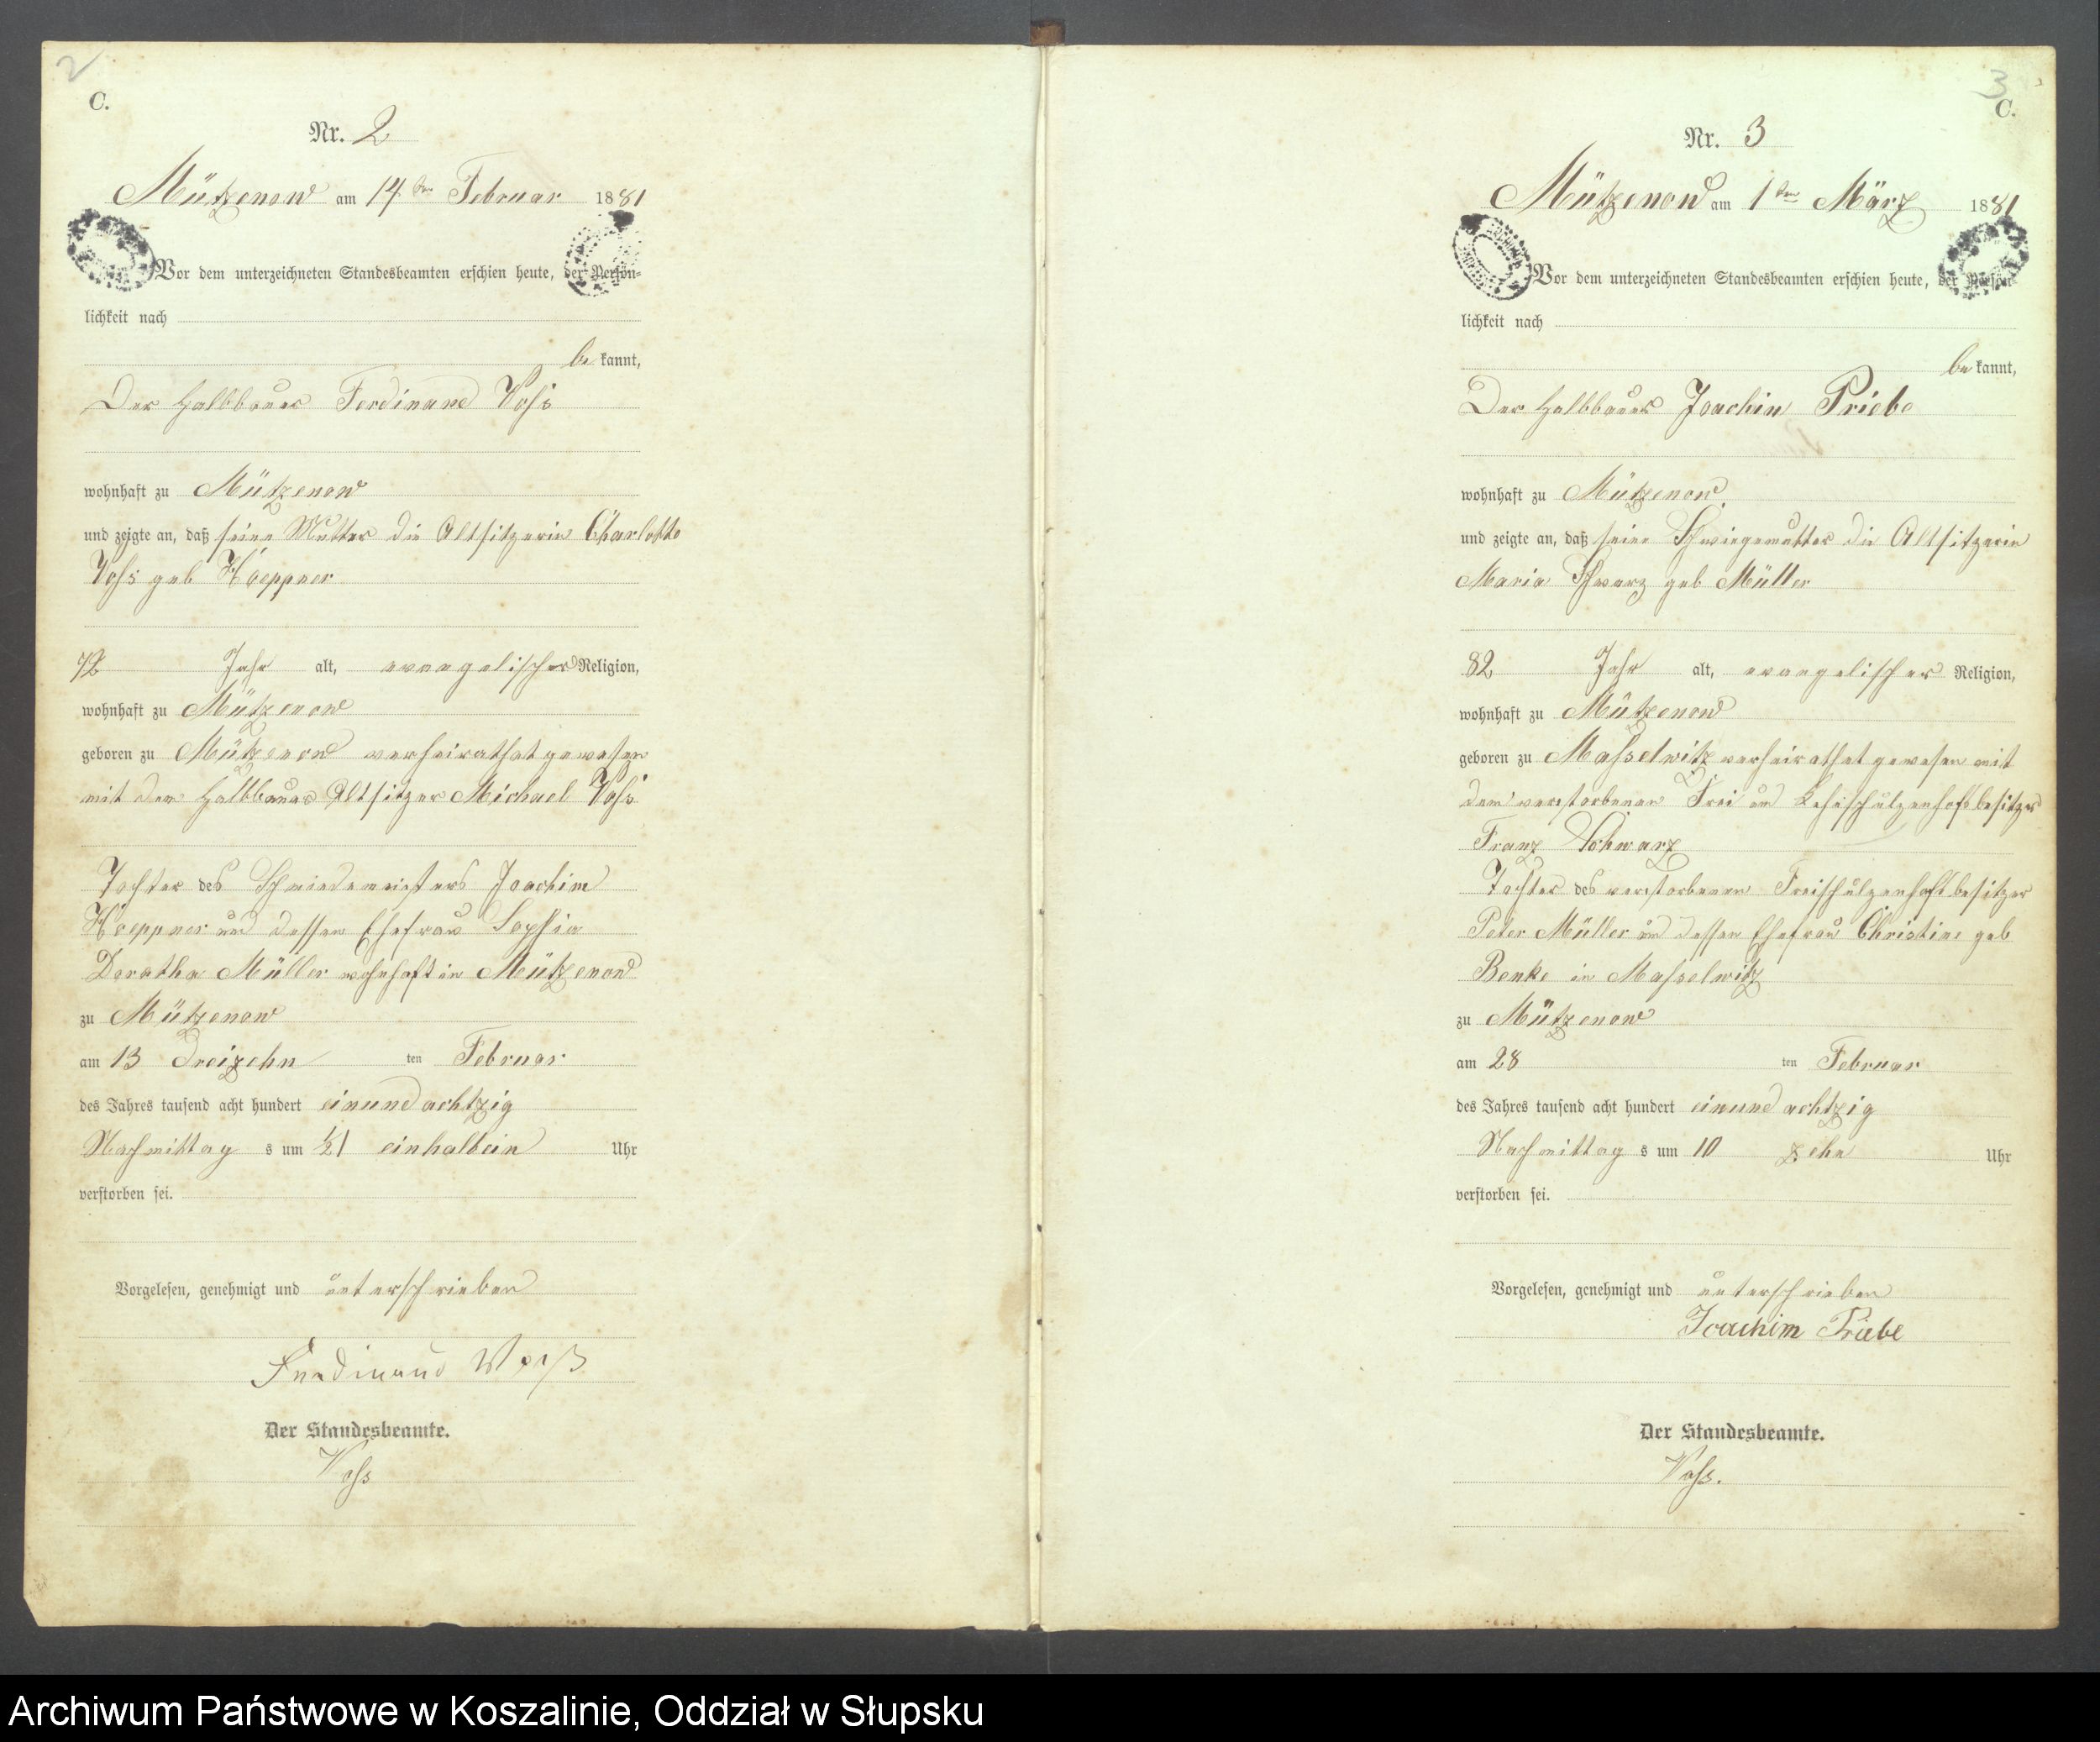 2
C.
Nr. 2
Mützenow am 14ten Februar 1881
Vor dem unterzeichneten Standesbeamten erschien heute, der Persön-
lichkeit nach
be kannt,
Der Halbbauer Ferdinand Voß
wohnhaft zu Mützenow
und zeigte an, daß seine Mutter die Altsitzerin Charlotte
Voß geb Hoeppner
72 Jahr alt, evangelischer Religion,
wohnhaft zu Mützenow
geboren zu Mützenow verheirathet gewesen
mit dem Halbbauer Altsitzer Michael Voß
Tochter des Schmiedemeisters Joachim
Hoeppner und dessen Ehefrau Sophia
Doratha Müller wohnhaft in Mützenow
zu Mützenow
am 13 Dreizehn ten Februar
des Jahres tausend acht hundert einundachtzig
Nachmittag s um ½1 einhalbein Uhr
verstorben sei.
Vorgelesen, genehmigt und unterschrieben
Ferdinand Voß
Der Standesbeamte.
Voß
3
C.
Nr. 3
Mützenow am 1ten März 1881
Vor dem unterzeichneten Standesbeamten erschien heute, der Persön-
lichkeit nach
be kannt,
Der Halbbauer Joachim Priebe
wohnhaft zu Mützenow
und zeigte an, daß seine Schwiegemutter die Altsitzerin
Maria Schwarz geb Müller
82 Jahr alt, evangelischer Religion,
wohnhaft zu Mützenow
geboren zu Masselwitz verheirathet gewesen mit
dem verstorbenen Frei und Lehnschulzenhofsbesitzer
Franz Schwarz
Tochter des verstorbenen Freischulzenhofbesitzer
Peter Müller und dessen Ehefrau Christine geb
Benke in Masselwitz
zu Mützenow
am 28 ten Februar
des Jahres tausend acht hundert einund achtzig
Nachmittag s um 10 zehn Uhr
verstorben sei.
Vorgelesen, genehmigt und unterschrieben
Joachim Priebe
Der Standesbeamte.
Voß.
Archiwum Państwowe w Koszalinie, Oddział w Słupsku